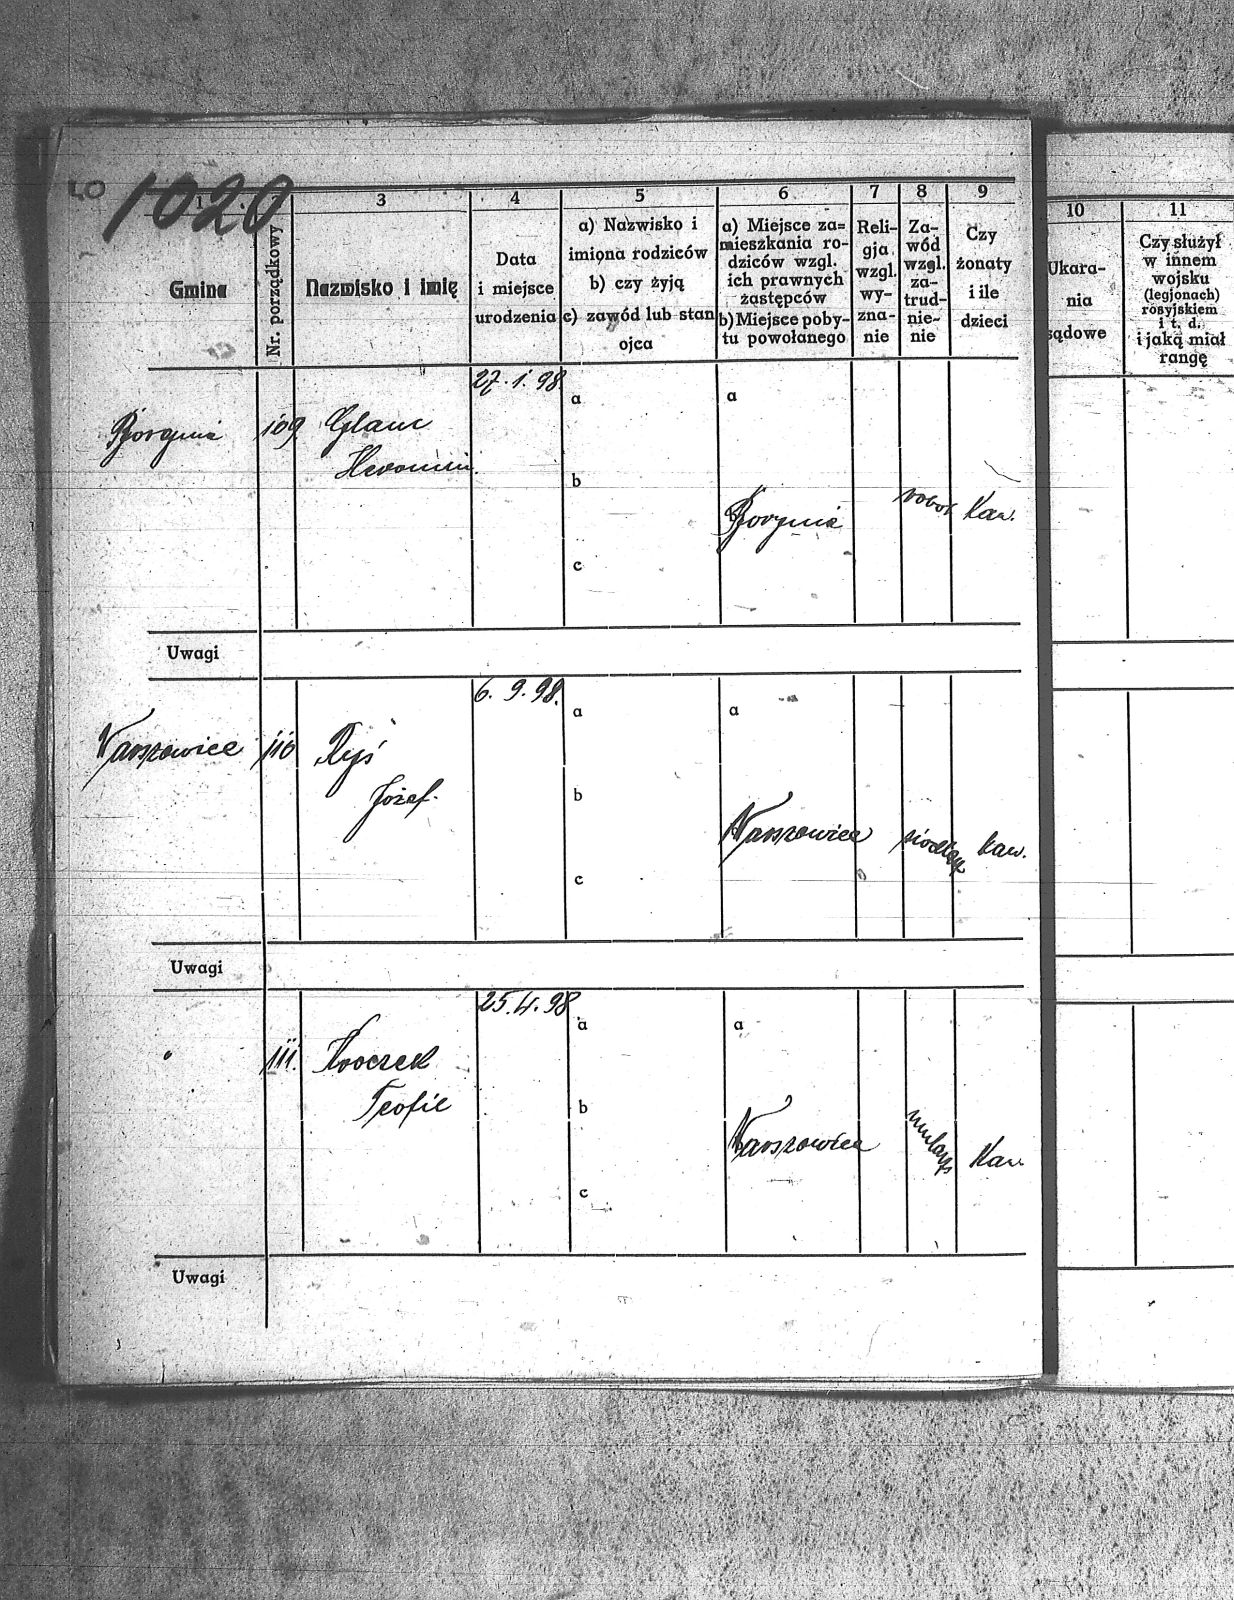 1020
1
3
4
5
6
7
8
9
10
11
Gmina
Nr. porządkowy
Nazwisko i imię
Data
i miejsce
urodzenia
a) Nazwisko i
imiona rodziców
b) czy żyją
c) zawód lub stan
ojca
a) Miejsce za=
mieszkania ro-
dziców wzgl.
ich prawnych
zastępców
b) Miejsce poby-
tu powołanego
Reli-
gja
wzgl.
wy-
zna-
nie
Za-
wód
wzgl.
za-
trud-
nie-
nie
Czy
żonaty
i ile
dzieci
Ukara-
nia
sądowe
Czy służył
w innem
wojsku
(legjonach)
rosyjskiem
i t. d.
i jaką miał
rangę
27. 1. 98
a
a
Borynia 109 Glanc
Hieronim.
b
b Borynia robot Kaw.
c
Uwagi
6. 9. 98.
a
a
Warszowice 110 Ryś
Józef.
b
Warszowice siodlarz kaw.
c
Uwagi
25. 4. 98
a
a
" 111. Kroczek
Teofil
b
Warszowice mularz Kaw
c
Uwagi